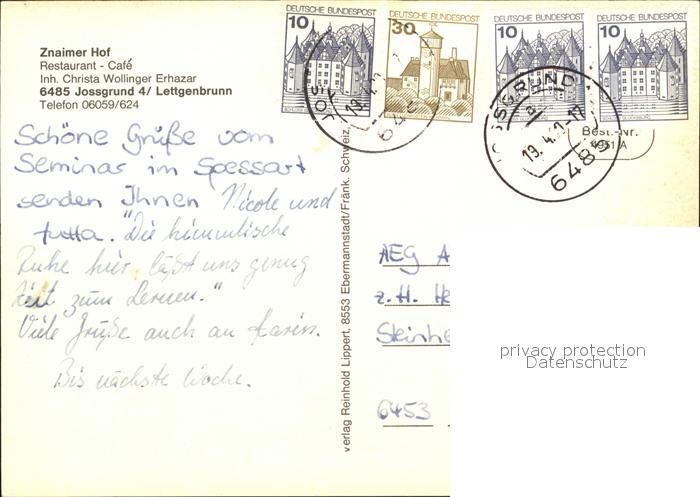 Znaimer Hof
Restaurant - Café
Inh. Christa Wollinger Erhazar
6485 Jossgrund 4/ Lettgenbrunn
Telefon 06059/624
Schöne Grüße vom
Seminar im Spessart
senden Ihnen Nicole und
Jutta. "Die himmlische
Ruhe hier läßt uns genug
Zeit zum Lernen."
Viele Grüße auch an Karin.
Bis nächste Woche.
verlag Reinhold Lippert, 8553 Ebermannstadt/Fränk. Schweiz,
10 DEUTSCHE BUNDESPOST
DEUTSCHE BUNDESPOST 30
DEUTSCHE BUNDESPOST 10
DEUTSCHE BUNDESPOST 10
JOSSGRUND
19.4.
648
Best.-Nr.
4951 A
AEG A
z.H. He
Steinhe
6453
privacy protection
Datenschutz